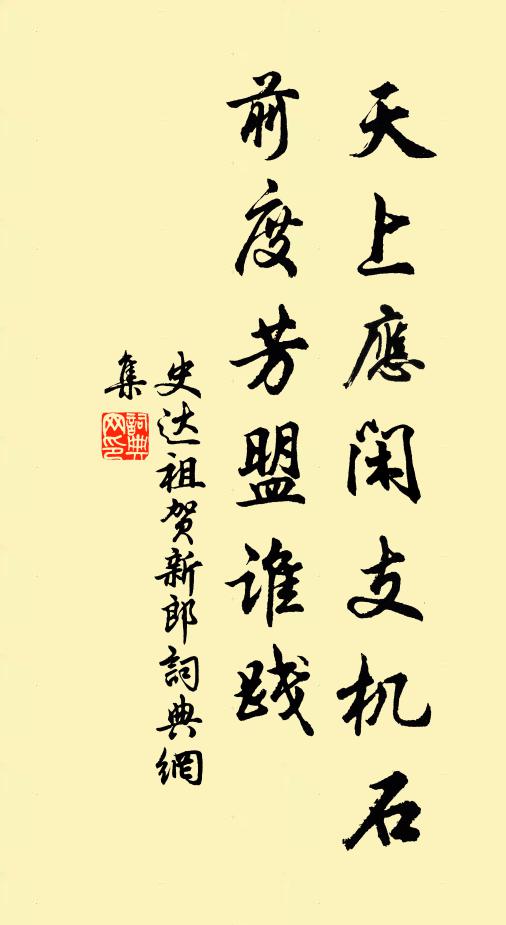 天上應閑支机石
前度芳盟谁践
史达祖贺新郎詞典網
集
詞典网印